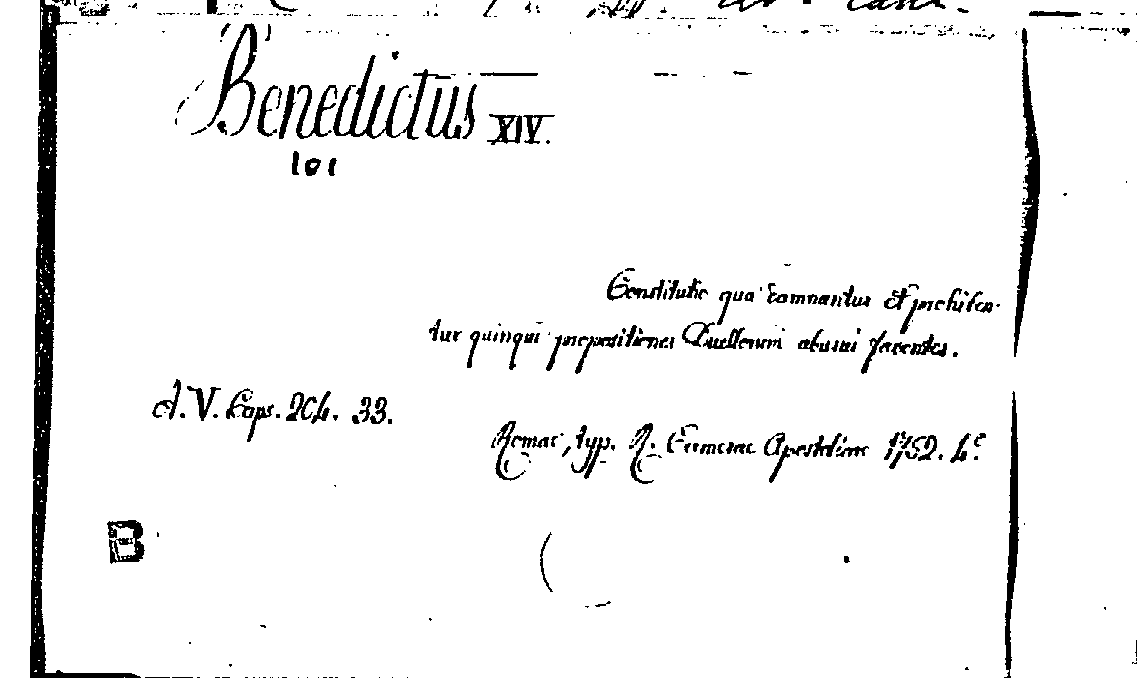 Benedictus XIV.
101
Constitutio qua damnantur et prohiben-
tur quinque propositiones Duellorum abusui faventes.
A.V. Caps. 204. 33.
Romae, typ. R. Camerae Apostolicae 1752. 4º.
B